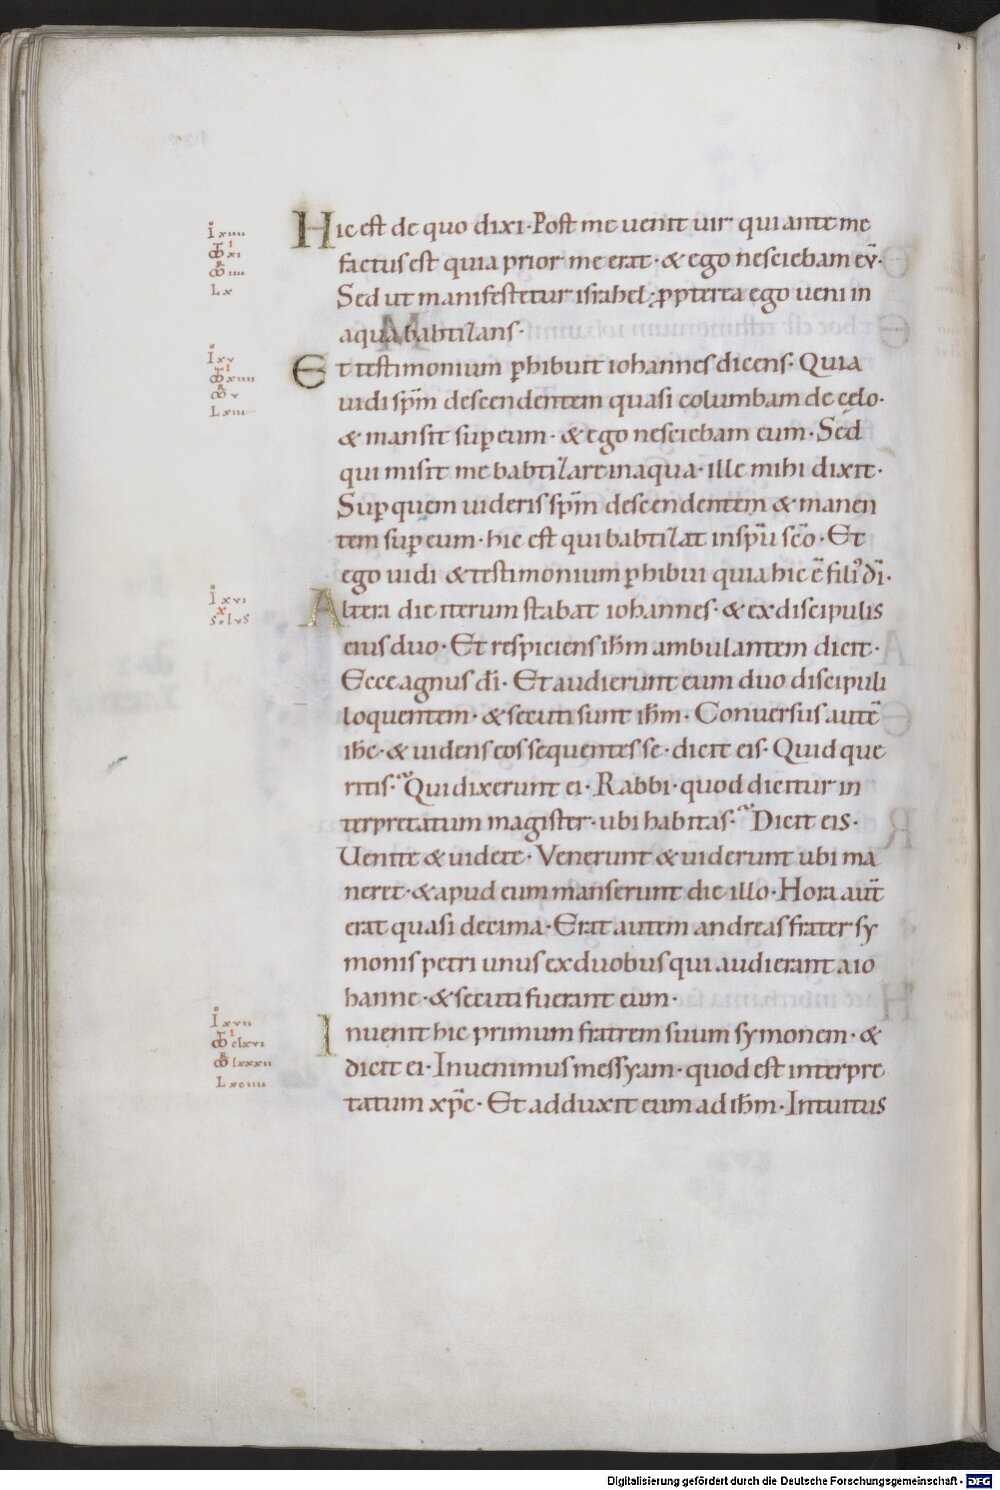 Hic est de quo dixi· Post me uenit uir qui ante me
factus est quia prior me erat· & ego nesciebam eū·
Sed ut manifestetur israhel· ꝓpterea ego ueni in
aqua babtizans·
Et testimonium ꝑhibuit iohannes dicens· Quia
uidi sp̄m descendentem quasi columbam de celo·
& mansit suꝑ eum· & ego nesciebam eum· Sed
qui misit me babtizare in aqua· ille mihi dixit·
Suꝑ quem uideris sp̄m descendentem & manen
tem suꝑ eum· hic est qui babtizat in sp̄u sc̄o· Et
ego uidi & testimonium ꝑhibui quia hic ē filiꝰ dī·
Altera die iterum stabat iohannes· & ex discipulis
eius duo· Et respiciens ih̄m ambulantem dicit·
Ecce agnus dī· Et audierunt eum duo discipuli
loquentem· & secuti sunt ih̄m· Conuersus autē
ih̄c· & uidens eos sequentes se· dicit eis· Quid que
ritis· Qui dixerunt ei· Rabbi· quod dicitur in
terpretatum magister· ubi habitas· Dicit eis·
Uenite & uidete· Venerunt & uiderunt ubi ma
neret· & apud eum manserunt die illo· Hora aut̄
erat quasi decima· Erat autem andreas frater sy
monis petri unus ex duobus qui audierant a io
hanne· & secuti fuerant eum·
Inuenit hic primum fratrem suum symonem· &
dicit ei· Inuenimus messyam· quod est interpre
tatum xp̄c· Et adduxit eum ad ih̄m· Intuitus
I xiiii
xi
iiii
L x
I xv
xiiii
v
L xiii
I xvi
x
SolVS
I xvii
clxvi
lxxxii
L xciiii
Digitalisierung gefördert durch die Deutsche Forschungsgemeinschaft - DFG